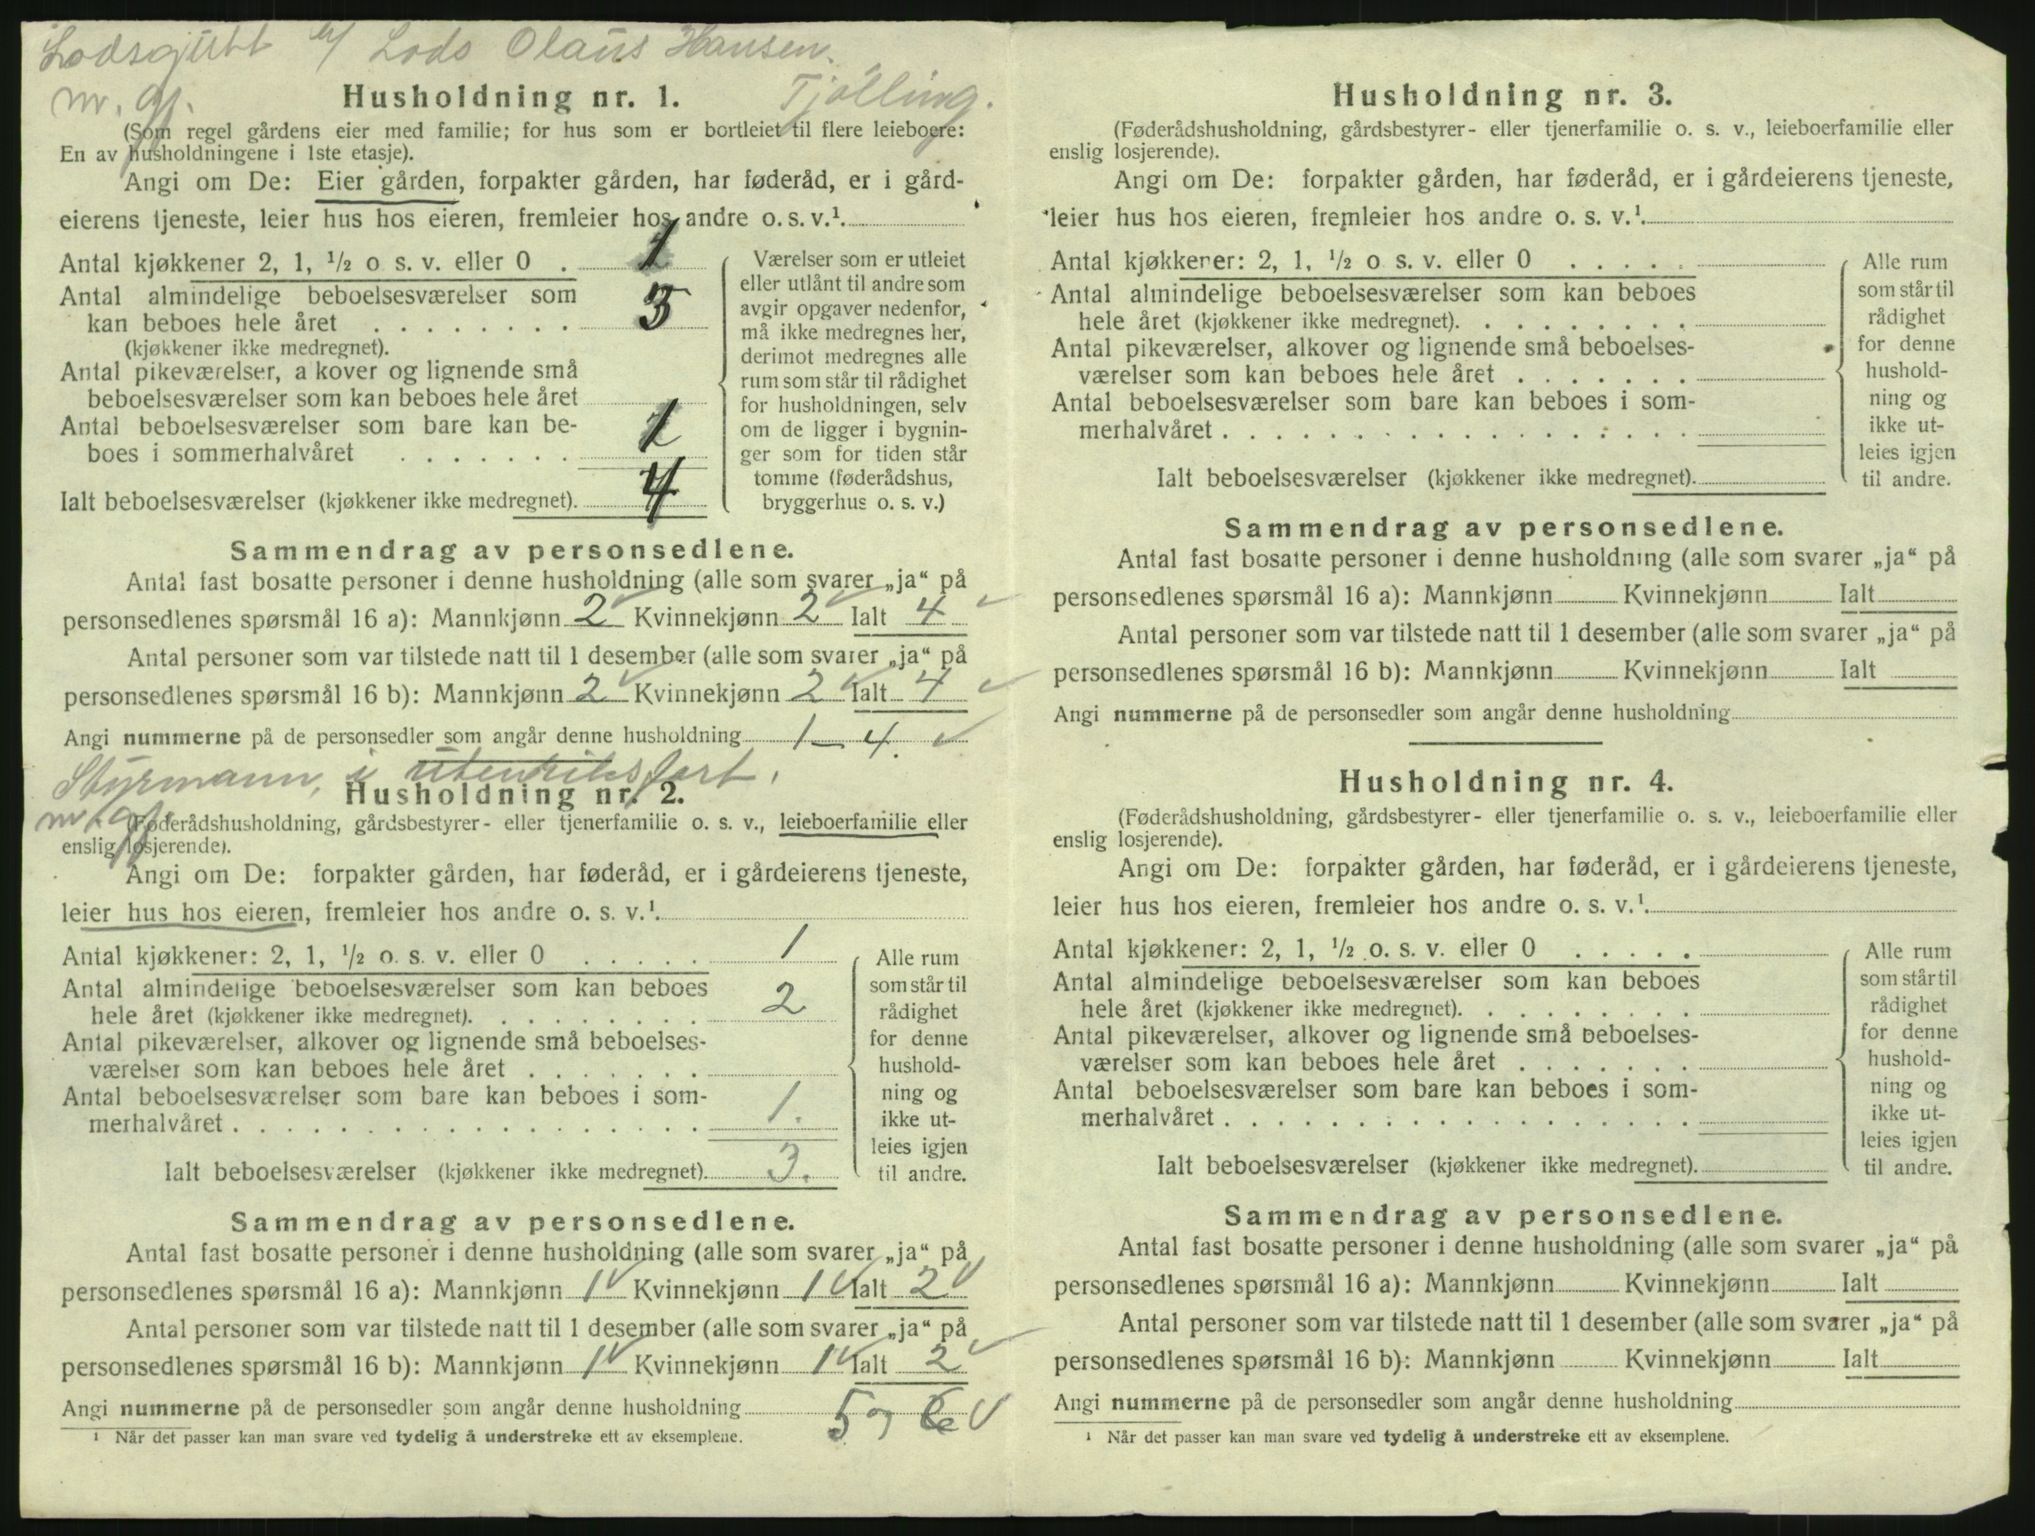 Lodsgutt h/ Lods Olaus Hansen.
m. gf. Husholdning nr. 1. Tjølling.
(Som regel gårdens eier med familie; for hus som er bortleiet til flere leieboere:
En av husholdningene i 1ste etasje).
Angi om De: Eier gården, forpakter gården, har føderåd, er i gård-
eierens tjeneste, leier hus hos eieren, fremleier hos andre o. s. v.¹.
Antal kjøkkener 2, 1, ½ o s. v. eller 0 . 1
Antal almindelige beboelsesværelser som
kan beboes hele året . . . . . . . . 3
(kjøkkener ikke medregnet).
Antal pikeværelser, a kover og lignende små
beboelsesværelser som kan beboes hele året
Antal beboelsesværelser som bare kan be-
boes i sommerhalvåret . . . . . . . 1
Ialt beboelsesværelser (kjøkkener ikke medregnet). 4
Værelser som er utleiet
eller utlånt til andre som
avgir opgaver nedenfor,
må ikke medregnes her,
derimot medregnes alle
rum som står til rådighet
for husholdningen, selv
om de ligger i bygnin-
ger som for tiden står
tomme (føderådshus,
bryggerhus o. s. v.)
Sammendrag av personsedlene.
Antal fast bosatte personer i denne husholdning (alle som svarer „ja“ på
personsedlenes spørsmål 16 a): Mannkjønn 2 Kvinnekjønn 2 Ialt 4
Antal personer som var tilstede natt til 1 desember (alle som svarer „ja“ på
personsedlenes spørsmål 16 b): Mannkjønn 2 Kvinnekjønn 2 Ialt 4
Angi nummerne på de personsedler som angår denne husholdning 1 – 4.
Styrmann, i utenriksfart.
m. gf. Husholdning nr. 2.
(Føderådshusholdning, gårdsbestyrer- eller tjenerfamilie o. s. v., leieboerfamilie eller
enslig losjerende).
Angi om De: forpakter gården, har føderåd, er i gårdeierens tjeneste,
leier hus hos eieren, fremleier hos andre o. s. v.¹.
Antal kjøkkener: 2, 1, ½ o. s. v. eller 0 . . . . . 1
Antal almindelige beboelsesværelser som kan beboes
hele året (kjøkkener ikke medregnet). . . . . . . . . 2
Antal pikeværelser, alkover og lignende små beboelses-
værelser som kan beboes hele året . . . . . . .
Antal beboelsesværelser som bare kan beboes i som-
merhalvåret . . . . . . . . . . . . . . . . . . 1.
Ialt beboelsesværelser (kjøkkener ikke medregnet). 3.
Alle rum
som står til
rådighet
for denne
hushold-
ning og
ikke ut-
leies igjen
til andre.
Sammendrag av personsedlene.
Antal fast bosatte personer i denne husholdning (alle som svarer „ja“ på
personsedlenes spørsmål 16 a): Mannkjønn 1 Kvinnekjønn 1 Ialt 2
Antal personer som var tilstede natt til 1 desember (alle som svarer „ja“ på
personsedlenes spørsmål 16 b): Mannkjønn 1 Kvinnekjønn 1 Ialt 2
Angi nummerne på de personsedler som angår denne husholdning 5 og 6
¹ Når det passer kan man svare ved tydelig å understreke ett av eksemplene.
Husholdning nr. 3.
(Føderådshusholdning, gårdsbestyrer- eller tjenerfamilie o. s. v., leieboerfamilie eller
enslig losjerende).
Angi om De: forpakter gården, har føderåd, er i gårdeierens tjeneste,
leier hus hos eieren, fremleier hos andre o. s. v.¹.
Antal kjøkkener: 2, 1, ½ o s. v. eller 0 . . . . .
Antal almindelige beboelsesværelser som kan beboes
hele året (kjøkkener ikke medregnet). . . . . . . . .
Antal pikeværelser, alkover og lignende små beboelses-
værelser som kan beboes hele året . . . . . . .
Antal beboelsesværelser som bare kan beboes i som-
merhalvåret . . . . . . . . . . . . . . . . . .
Ialt beboelsesværelser (kjøkkener ikke medregnet).
Alle rum
som står til
rådighet
for denne
hushold-
ning og
ikke ut-
leies igjen
til andre.
Sammendrag av personsedlene.
Antal fast bosatte personer i denne husholdning (alle som svarer „ja“ på
personsedlenes spørsmål 16 a): Mannkjønn Kvinnekjønn Ialt
Antal personer som var tilstede natt til 1 desember (alle som svarer „ja“ på
personsedlenes spørsmål 16 b): Mannkjønn Kvinnekjønn Ialt
Angi nummerne på de personsedler som angår denne husholdning
Husholdning nr. 4.
(Føderådshusholdning, gårdsbestyrer- eller tjenerfamilie o. s. v., leieboerfamilie eller
enslig losjerende).
Angi om De: forpakter gården, har føderåd, er i gårdeierens tjeneste,
leier hus hos eieren, fremleier hos andre o. s. v.¹.
Antal kjøkkener: 2, 1, ½ o. s. v. eller 0 . . . . .
Antal almindelige beboelsesværelser som kan beboes
hele året (kjøkkener ikke medregnet). . . . . . . . .
Antal pikeværelser, alkover og lignende små beboelses-
værelser som kan beboes hele året . . . . . . .
Antal beboelsesværelser som bare kan beboes i som-
merhalvåret . . . . . . . . . . . . . . . . . .
Ialt beboelsesværelser (kjøkkener ikke medregnet).
Alle rum
som står til
rådighet
for denne
hushold-
ning og
ikke ut-
leies igjen
til andre.
Sammendrag av personsedlene.
Antal fast bosatte personer i denne husholdning (alle som svarer „ja“ på
personsedlenes spørsmål 16 a): Mannkjønn Kvinnekjønn Ialt
Antal personer som var tilstede natt til 1 desember (alle som svarer „ja“ på
personsedlenes spørsmål 16 b): Mannkjønn Kvinnekjønn Ialt
Angi nummerne på de personsedler som angår denne husholdning
¹ Når det passer kan man svare ved tydelig å understreke ett av eksemplene.